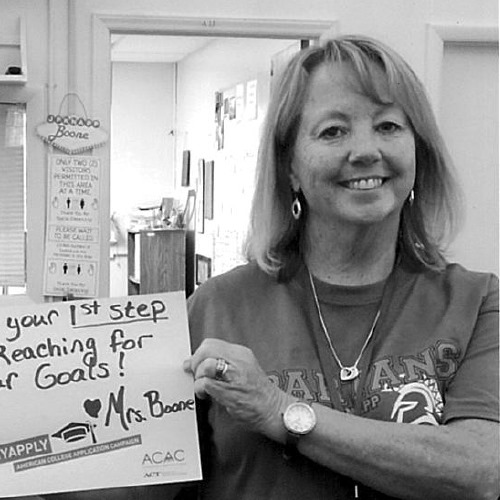 JOHNAPP
Boone
ONLY TWO (2)
VISITORS
PERMITTED IN
THIS AREA
AT A TIME.
Thank You
PLEASE WAIT
TO BE CALLED.
Thank You
your 1st step
Reaching for
ur Goals!
♥ Mrs. Boone
YAPPLY
AMERICAN COLLEGE APPLICATION CAMPAIGN
ACAC
ACT
PARTANS
PP